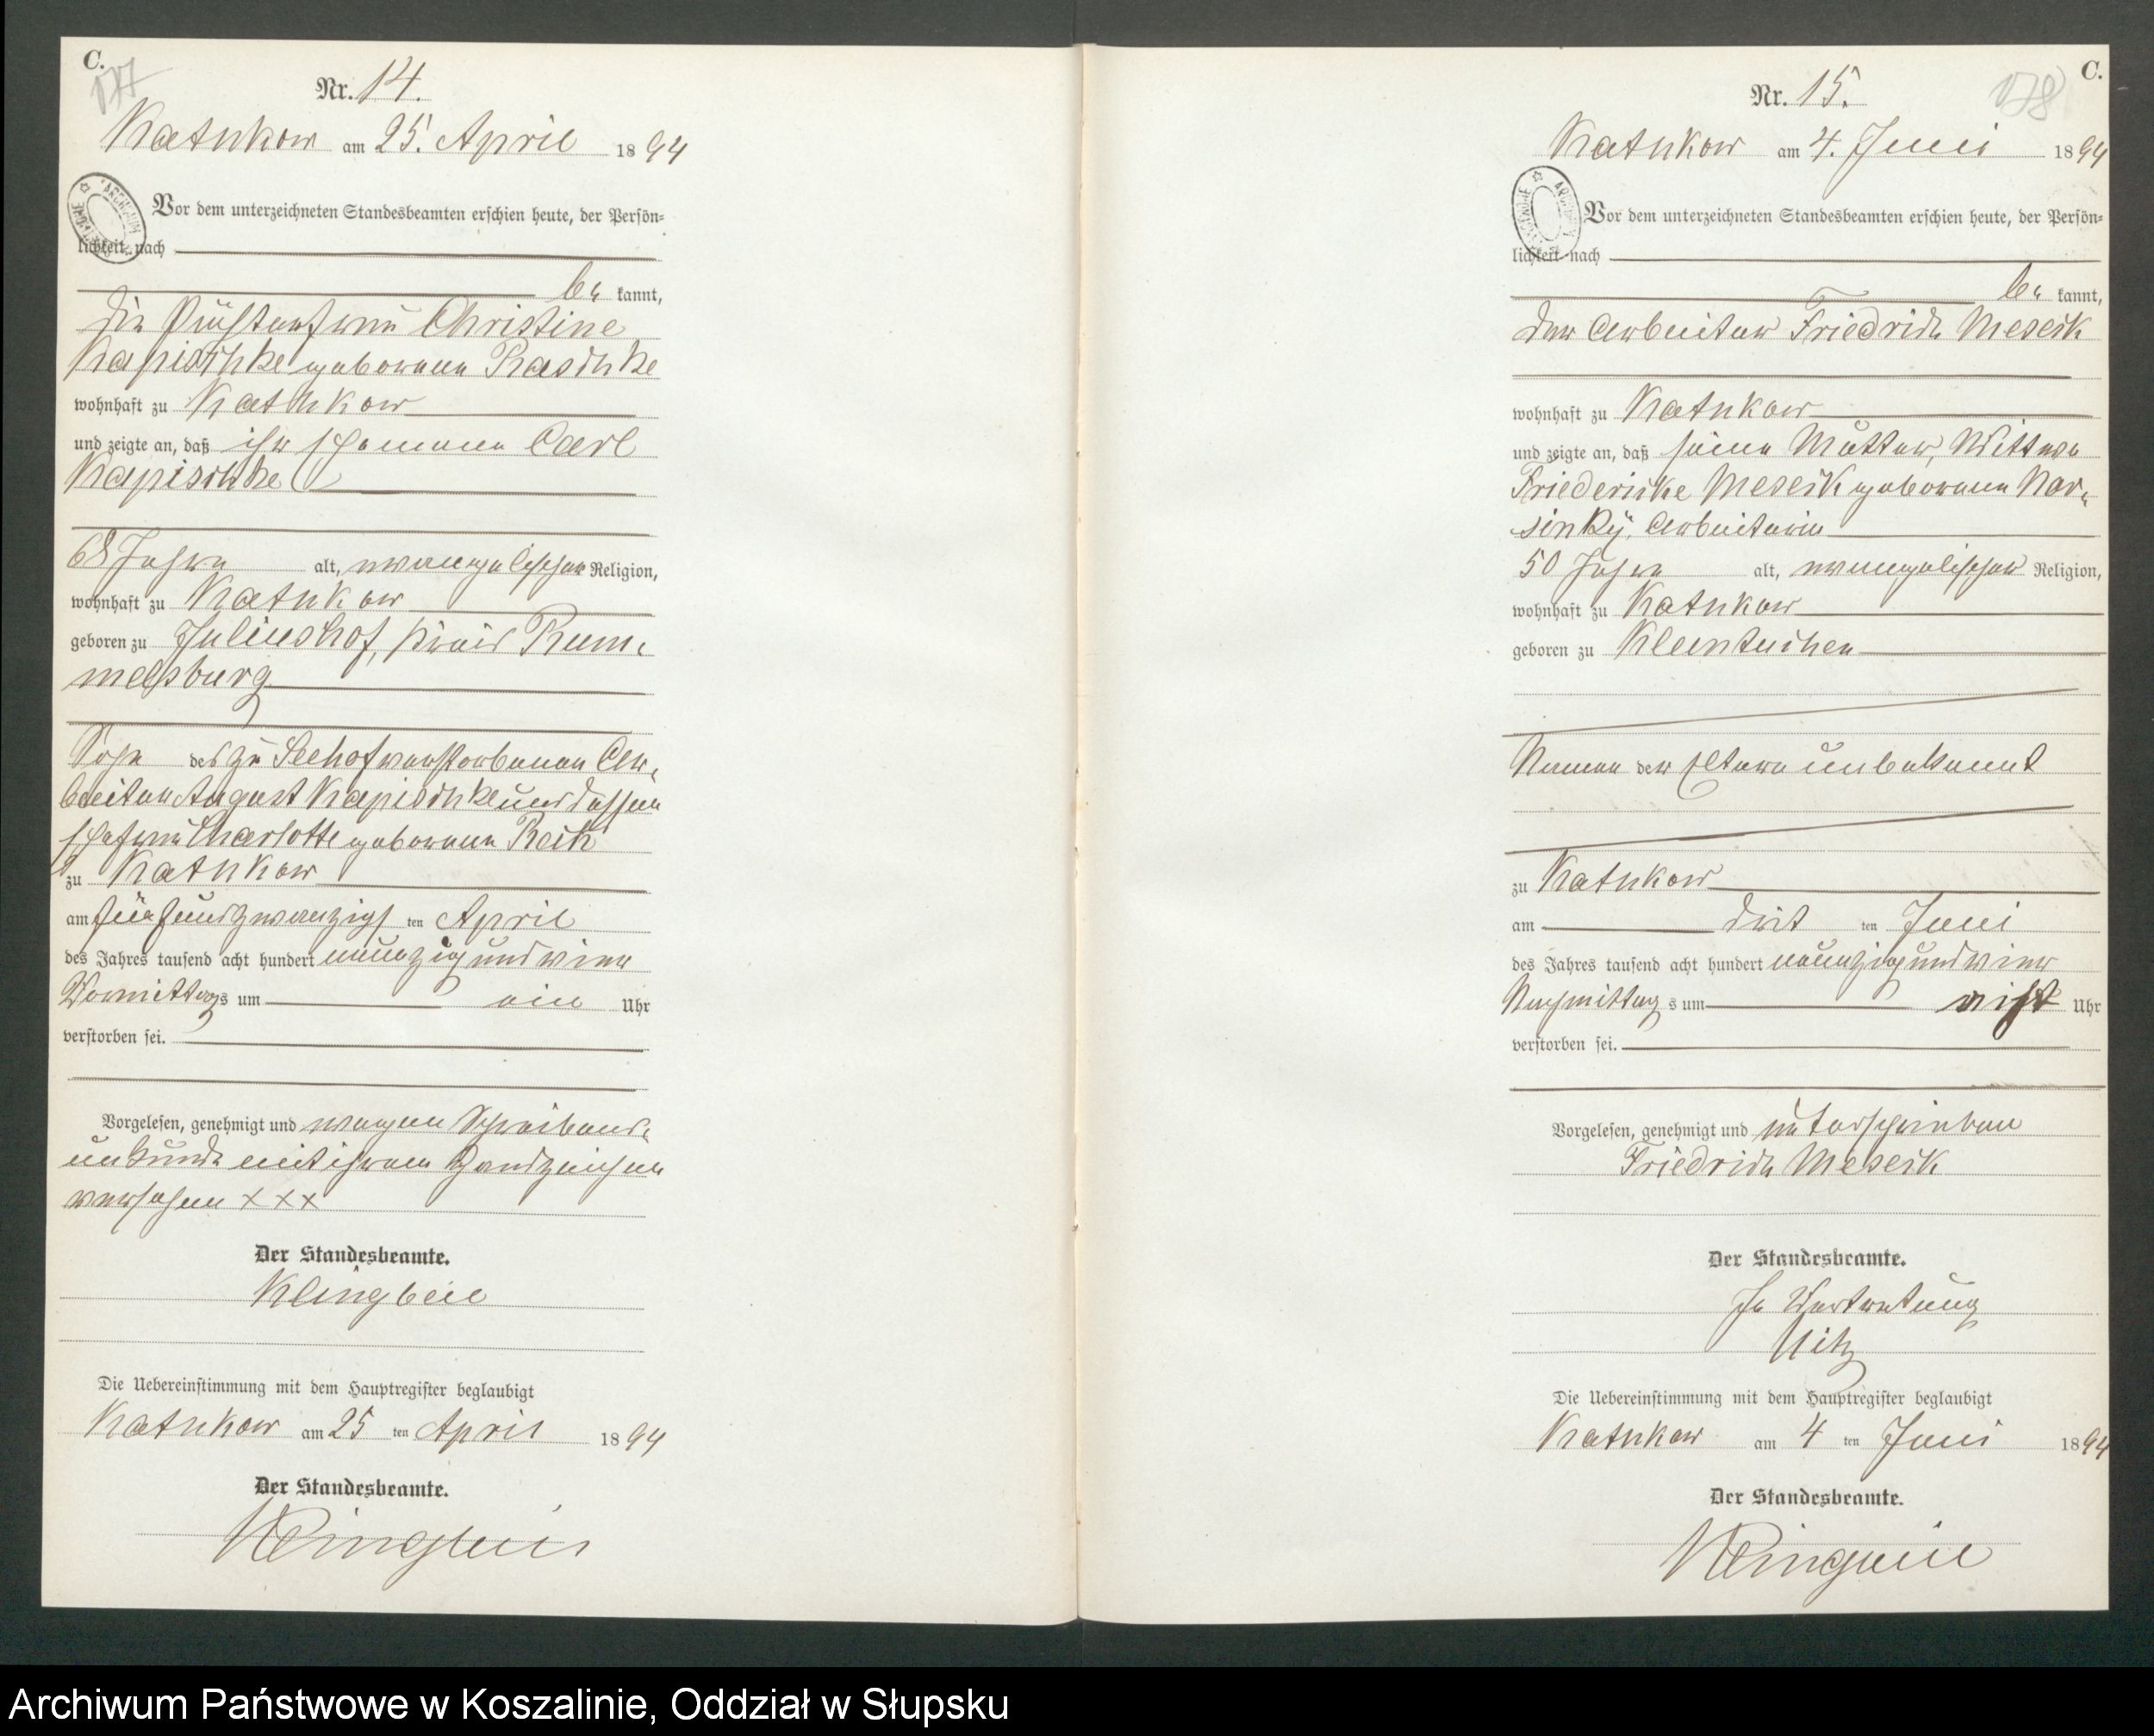 C.
177
Nr. 14.
Kathkow am 25. April 1894
Vor dem unterzeichneten Standesbeamten erschien heute, der Persön=
lichkeit nach
be kannt,
die Christine
Kapischke geborene Raschke
wohnhaft zu Kathkow
und zeigte an, daß ihr Ehemann Carl
Kapischke
68 Jahre alt, evangelischer Religion,
wohnhaft zu Kathkow
geboren zu Juliushof, Kreis Rum-
melsburg
Sohn des zu Seehof verstorbenen Ar-
beiter August Kapischke und dessen
Ehefrau Charlotte geborene
zu Kathkow
am fünfundzwanzigsten April
des Jahres tausend acht hundert neunzig und vier
Vormittags um ein Uhr
verstorben sei.
Vorgelesen, genehmigt und wegen Schreibens-
unkunde mit ihrem Handzeichen
versehen XXX
Der Standesbeamte.
Klingbeil
Die Uebereinstimmung mit dem Hauptregister beglaubigt
Kathkow am 25 ten April 1894
Der Standesbeamte.
Klingbeil
C.
178
Nr. 15.
Kathkow am 4. Juni 1894
Vor dem unterzeichneten Standesbeamten erschien heute, der Persön=
lichkeit nach
be kannt,
der Arbeiter Friedrich Meseck
wohnhaft zu Kathkow
und zeigte an, daß seine Mutter, Wittwe
Friedericke Meseck geborene
Arbeiterin
50 Jahre alt, evangelischer Religion,
wohnhaft zu Kathkow
geboren zu Kleintuchen
Namen der Eltern unbekannt
zu Kathkow
am dritten Juni
des Jahres tausend acht hundert neunzig und vier
Nachmittags um acht Uhr
verstorben sei.
Vorgelesen, genehmigt und unterschrieben
Friedrich Meseck
Der Standesbeamte.
In Vertretung
Die Uebereinstimmung mit dem Hauptregister beglaubigt
Kathkow am 4 ten Juni 1894
Der Standesbeamte.
Klingbeil
Archiwum Państwowe w Koszalinie, Oddział w Słupsku